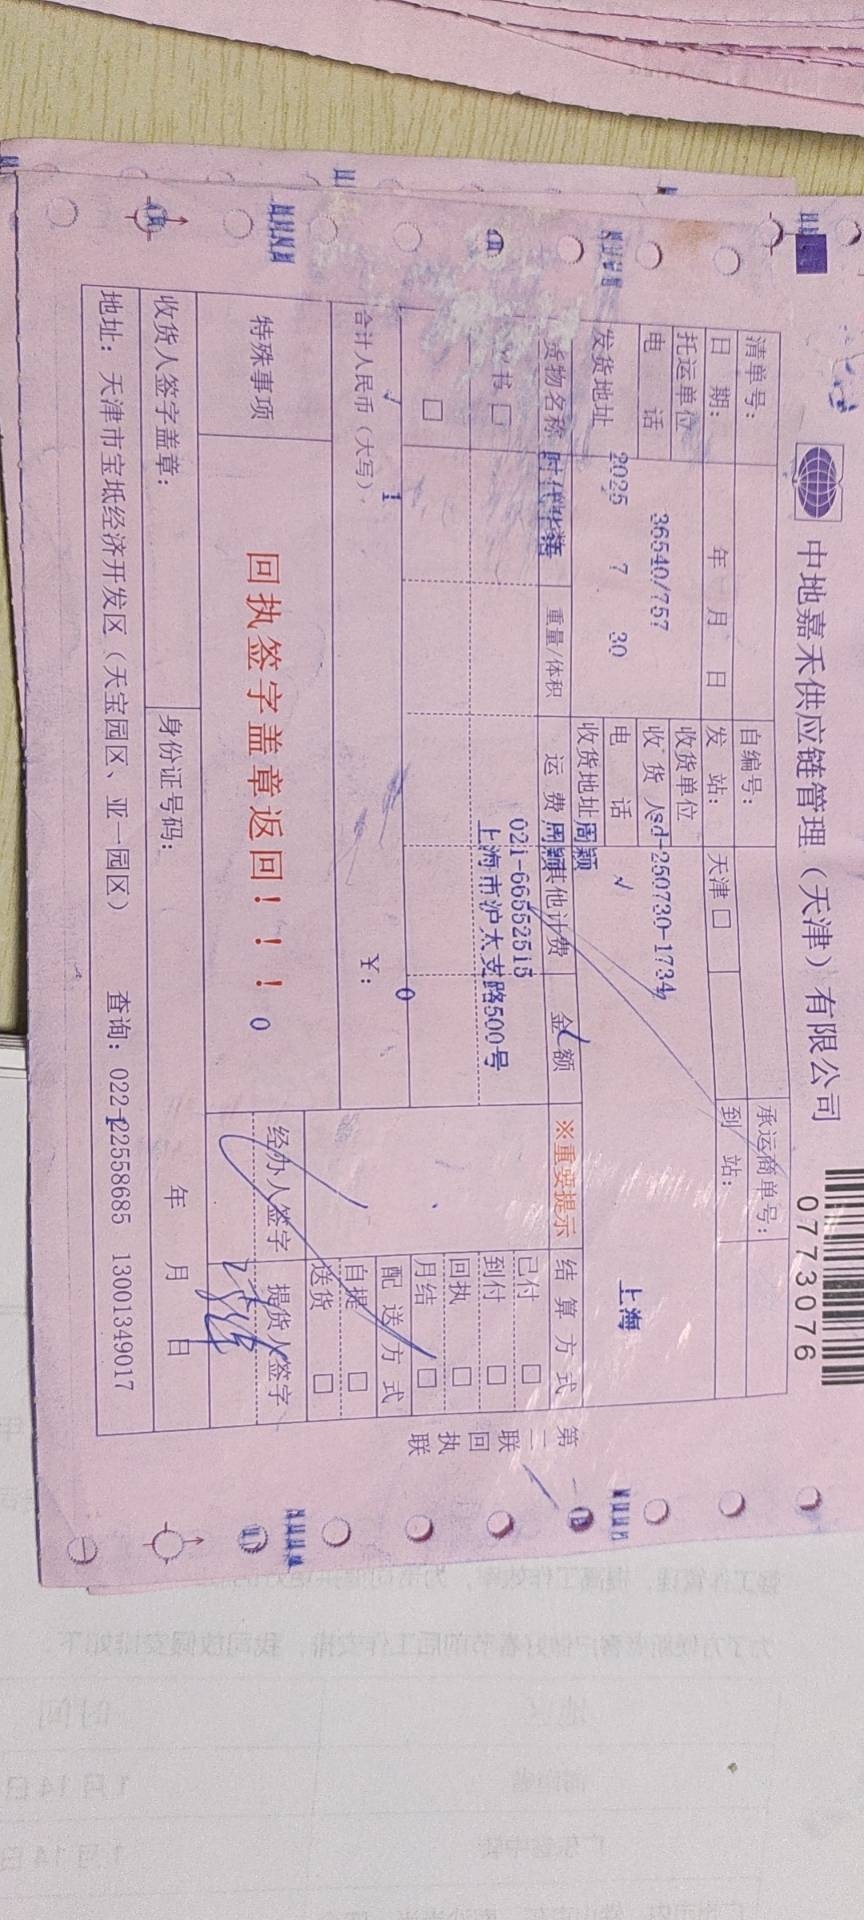 中地嘉禾供应链管理（天津）有限公司
0773076
清单号：
自编号：
承运商单号：
日 期： 年 月 日
发 站： 天津□
到 站：
托运单位
收货单位
电 话
36540/757
收 货 人
sd-250730-1734
发货地址
2025 7 30
电 话
√
上海
收货地址
周颖
货物名称
时代华语
重量/体积
运 费
周颖
其他计费
金 额
※重要提示
结 算 方 式
021-66552515
上海市沪太支路500号
书 □
□
已付 □
到付 □
回执 □
月结 □
√
1
0
合计人民币（大写）：
￥：
配 送 方 式
自提 □
送货 □
特殊事项
回执签字盖章返回！！！
0
经办人签字
提货人签字
收货人签字盖章：
身份证号码：
年 月 日
地址：天津市宝坻经济开发区（天宝园区、亚一园区）
查询：022-22558685 13001349017
第二联回执联
地区
时间
1月14日
1月14日